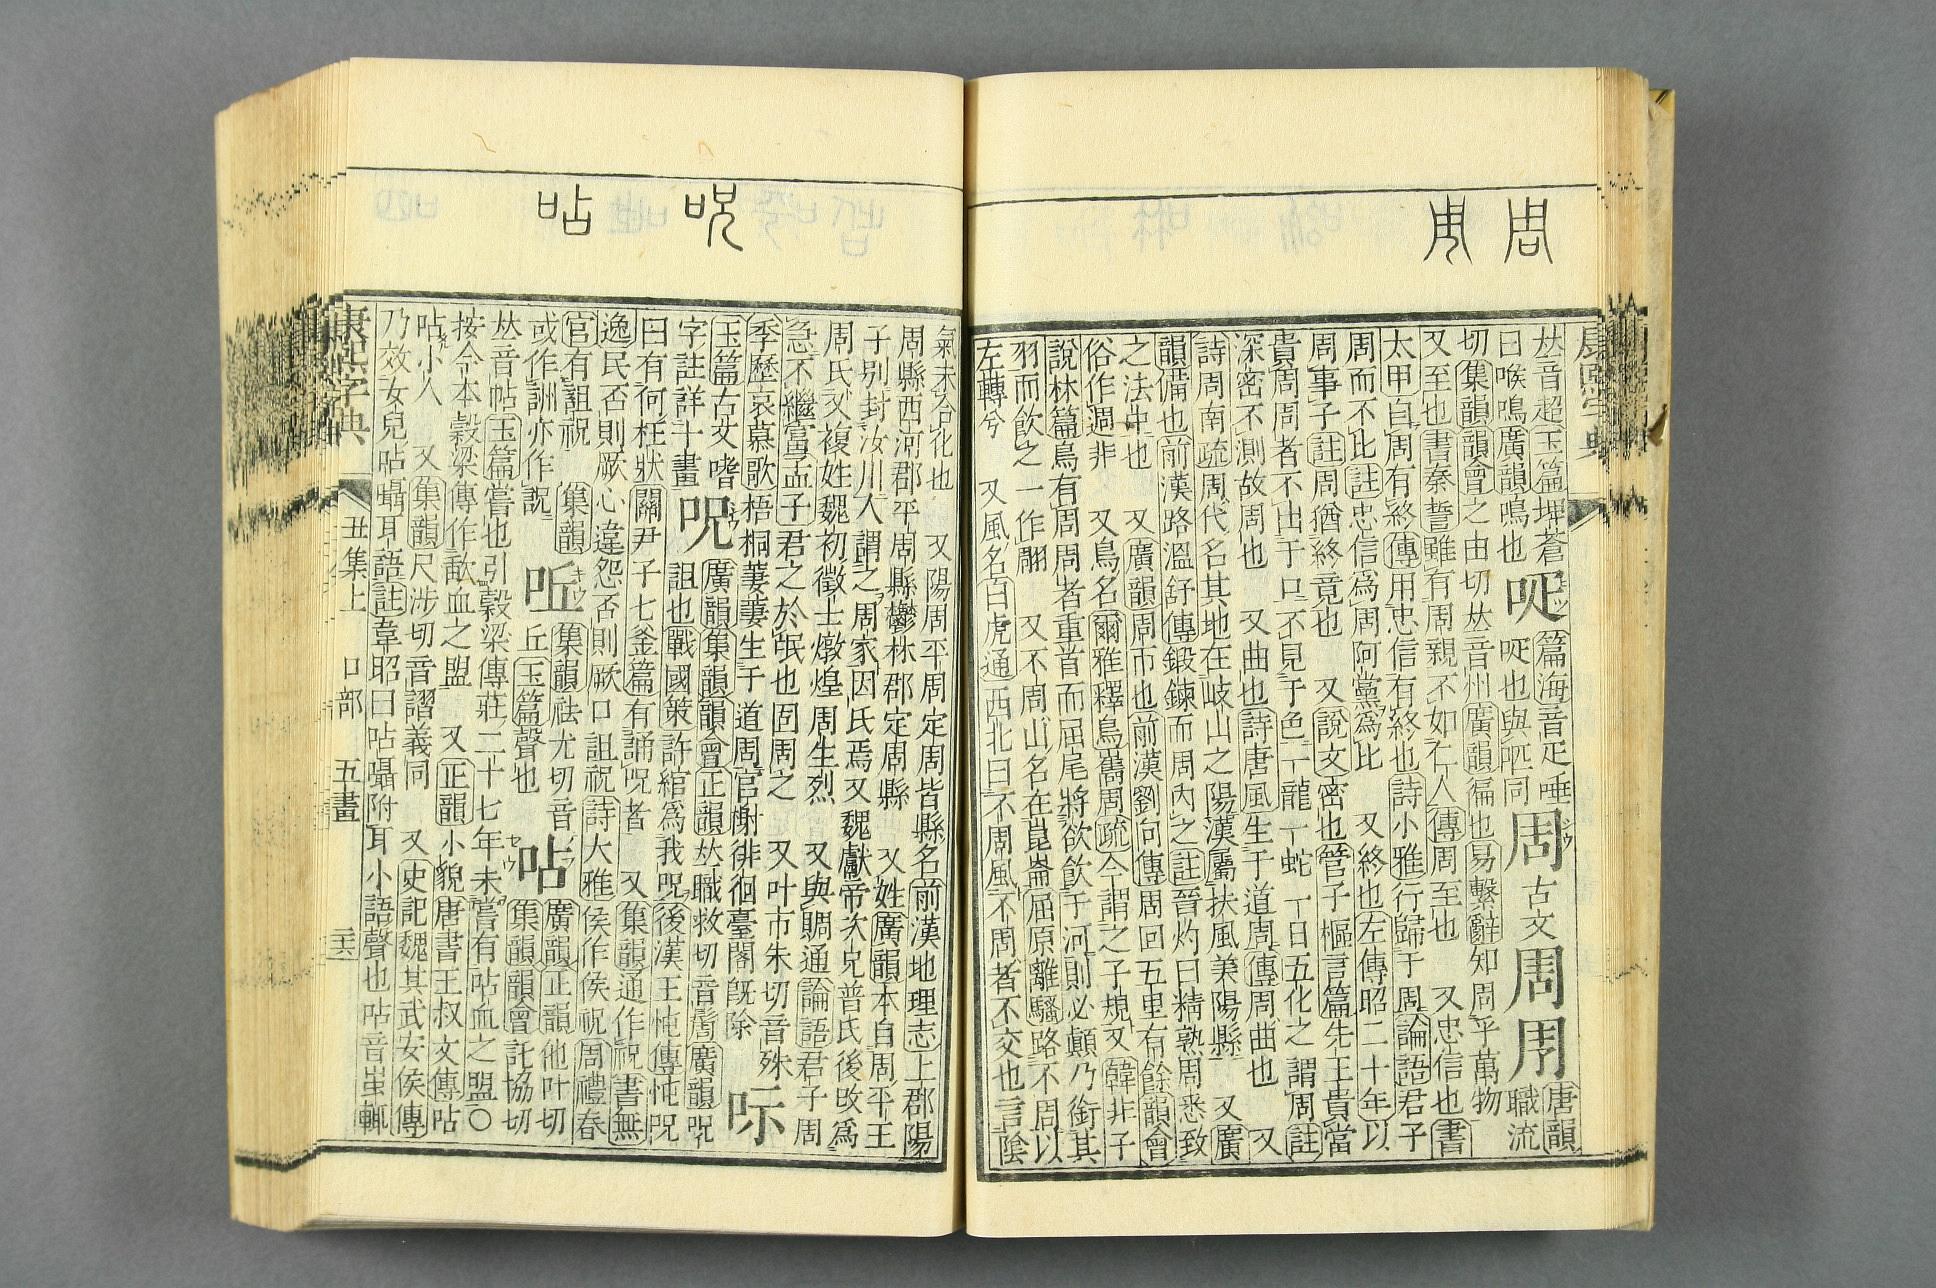 周
𠱬
𠀤音超玉篇埤蒼
曰喉鳴廣韻鳴也
呢
篇海音疋唾
呢也與呭同
周
古文
𠱬
周
唐韻
職流
切集韻韻會之由切𠀤音州廣韻徧也易繫辭知周乎萬物
又至也書泰誓雖有周親不如仁人傳周至也 又忠信也書
太甲自周有終傳用忠信有終也詩小雅行歸于周論語君子
周而不比註忠信爲周阿黨爲比 又終也左傳昭二十年以
周事子註周猶終竟也 又說文密也管子樞言篇先王貴當
貴周周者不出于口不見于色一龍一蛇一日五化之謂周註
深密不測故周也 又曲也詩唐風生于道周傳周曲也 又
詩周南疏周代名其地在岐山之陽漢屬扶風美陽縣 又廣
韻備也前漢路溫舒傳鍛鍊而周內之註晉灼曰精熟周悉致
之法中也 又廣韻周帀也前漢劉向傳周回五里有餘韻會
俗作週非 又鳥名爾雅釋鳥巂周疏今謂之子規又韓非子
說林篇鳥有周周者重首而屈尾將欲飮于河則必顚乃銜其
羽而飮之一作翢 又不周山名在崑崙屈原離騷路不周以
左轉兮 又風名白虎通西北曰不周風不周者不交也言陰
呪
呫
氣未合化也 又陽周平周定周皆縣名前漢地理志上郡陽
周縣西河郡平周縣鬱林郡定周縣 又姓廣韻本自周平王
子別封汝川人謂之周家因氏焉又魏獻帝次兄普氏後改爲
周氏又複姓魏初徵士燉煌周生烈 又與賙通論語君子周
急不繼富孟子君之於氓也固周之 又叶市朱切音殊
季歷哀慕歌梧桐萋萋生于道周官榭徘徊臺閣旣除
𠰍
玉篇古文嗜
字註詳十畫
呪
廣韻集韻韻會正韻𠀤職救切音𪇰廣韻呪
詛也戰國策許綰爲我呪後漢王忳傳忳呪
曰有何枉狀關尹子七釜篇有誦呪者 又集韻通作祝書無
逸民否則厥心違怨否則厥口詛祝詩大雅侯作侯祝周禮春
官有詛祝 集韻
或作詶亦作詋
㕤
集韻祛尤切音
丘玉篇聲也
呫
廣韻正韻他叶切
集韻韻會託協切
𠀤音帖玉篇嘗也引穀梁傳莊二十七年未嘗有呫血之盟〇
按今本穀梁傳作歃血之盟 又正韻小貌唐書王叔文傳呫
呫小人 又集韻尺涉切音謵義同 又史記魏其武安侯傳
乃效女兒呫囁耳語註韋昭曰呫囁附耳小語聲也呫音蚩輒
康熙字典
丑集上
口部
五畫